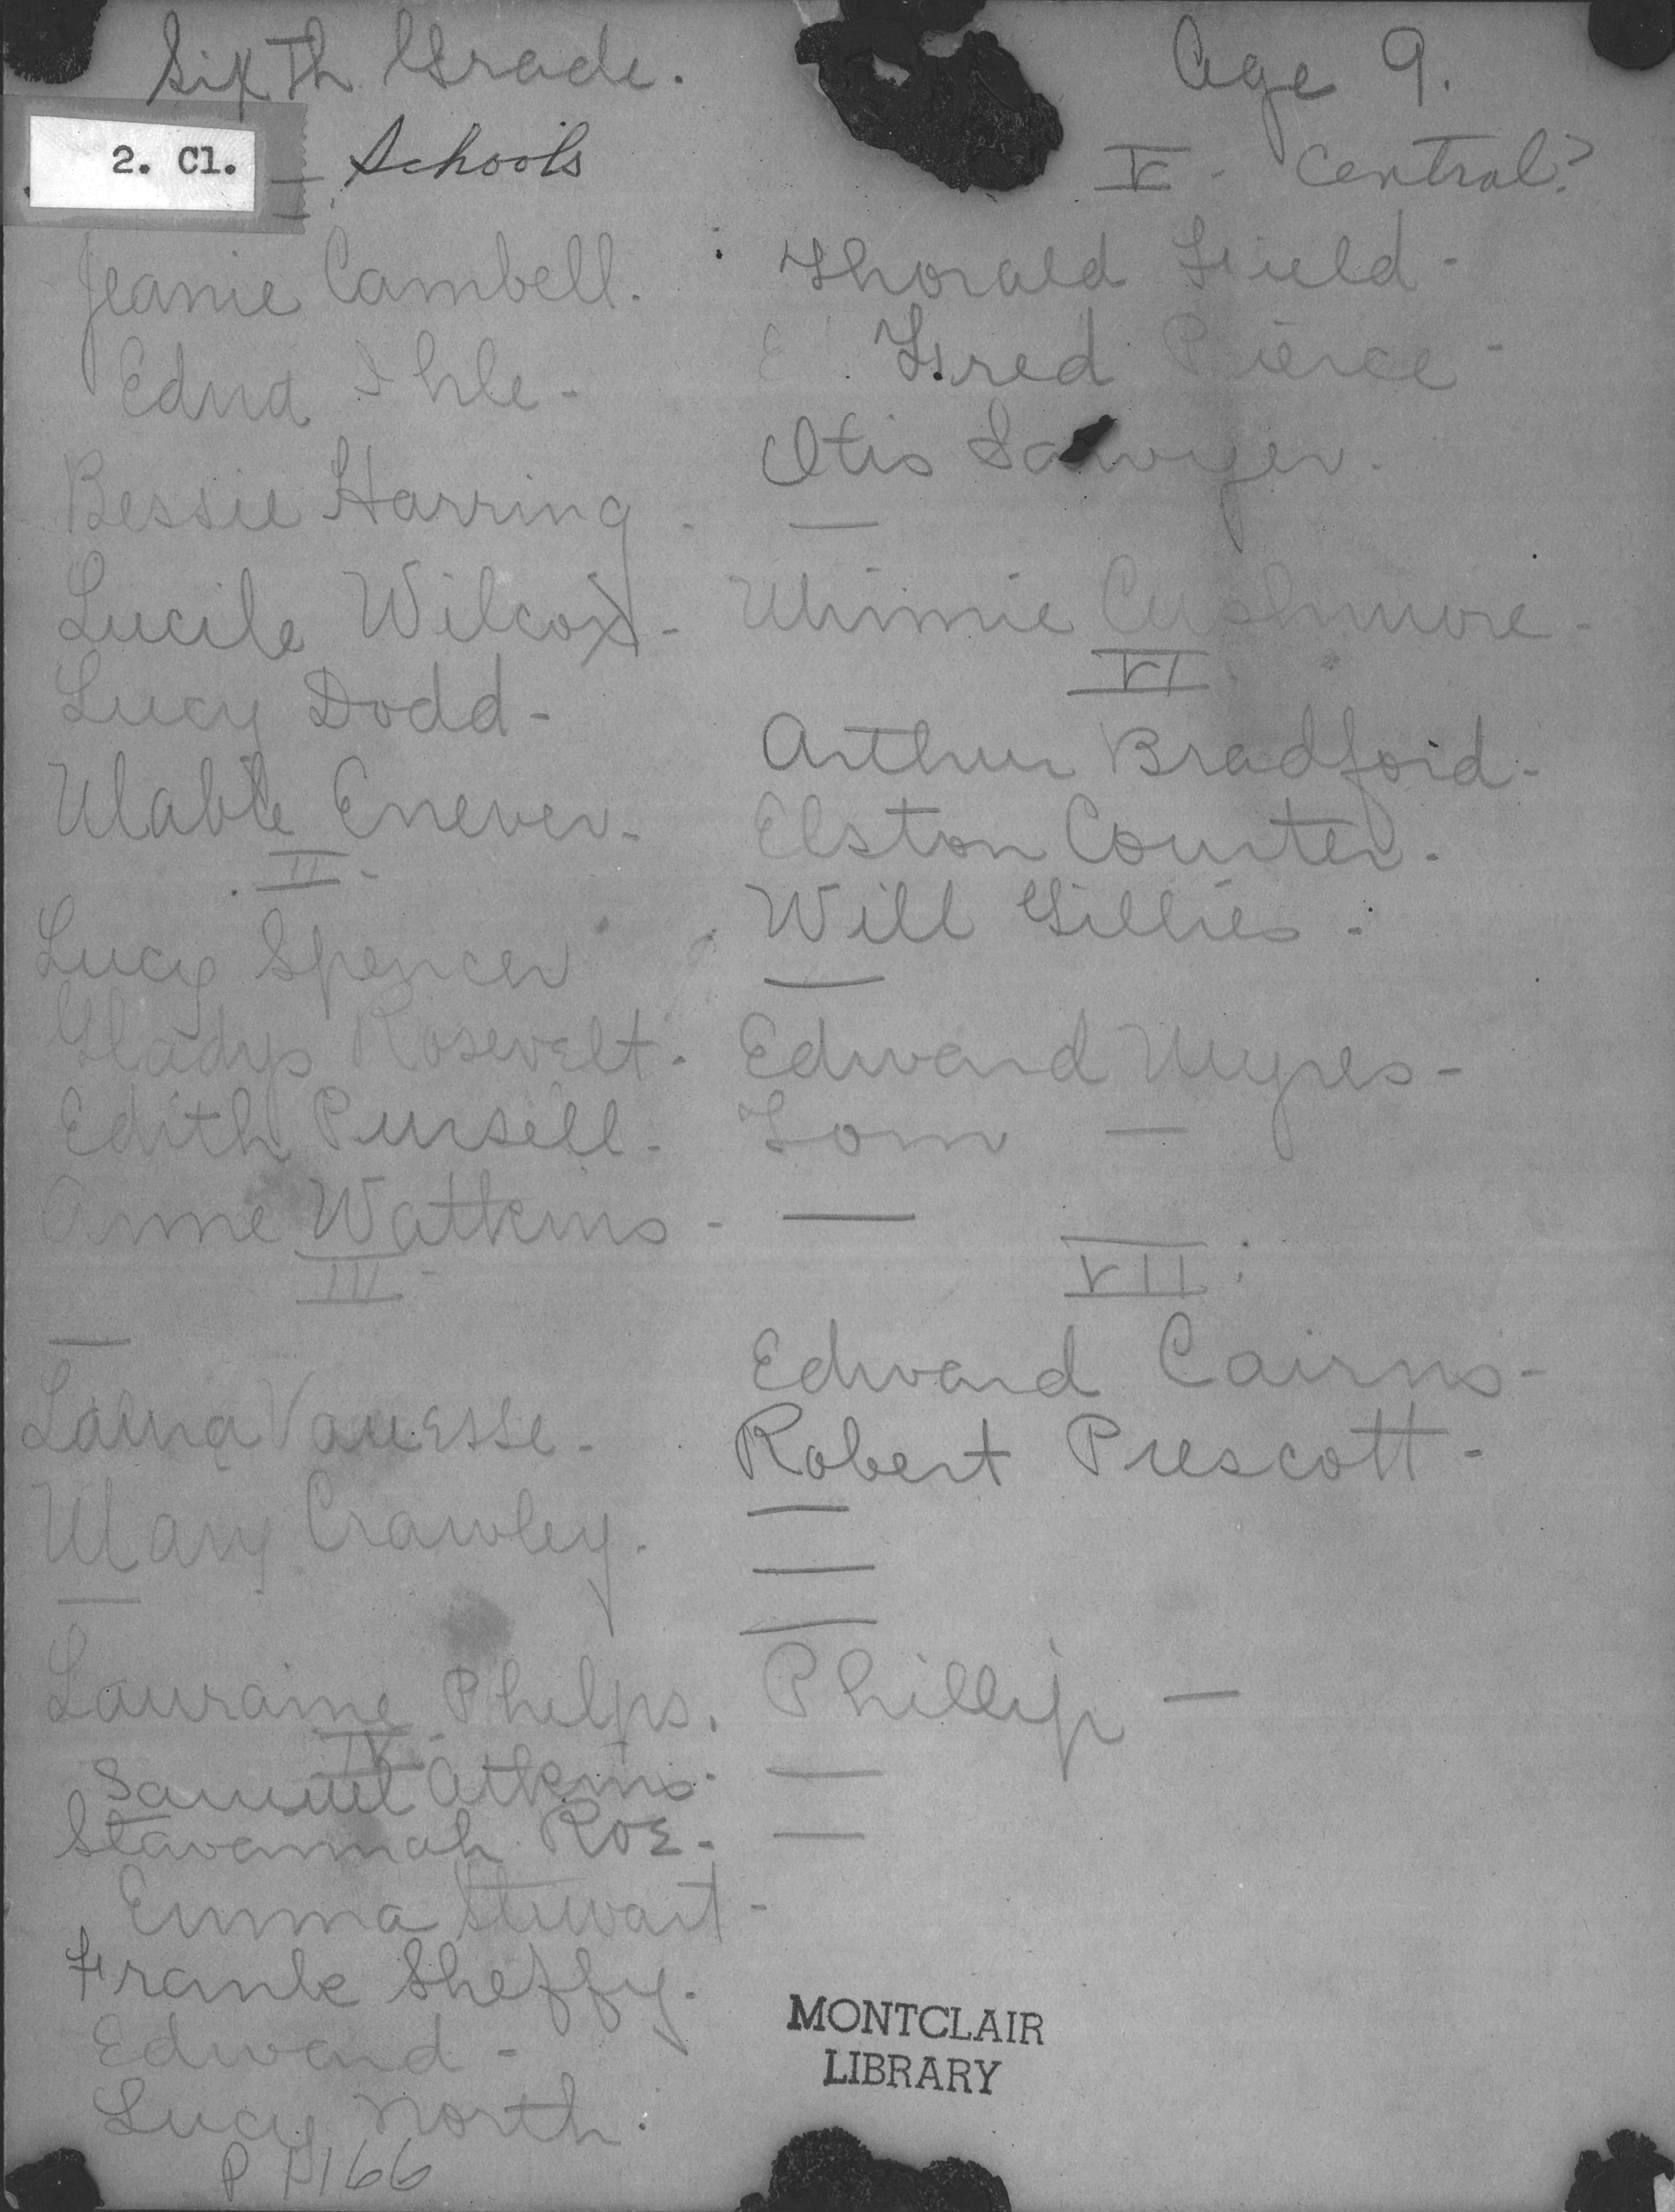 Sixth Grade.
2. Cl.
Schools
I.
Jeanie Cambell.
Edna Ihle -
Bessie Harring -
Lucile Wilcox -
Lucy Dodd -
Mable Enever -
II -
Lucy Spencer
Gladys Rosevelt -
Edith Pursell -
Anne Watkins -
III -
—
Vanesse -
Mary Crawley.
—
Lauraine Phelps.
IV -
Samuel Atkins -
Roe -
Emma Stewart -
Frank Sheffy -
Edward -
Lucy North.
P H166
Age 9.
V - Central?
Thorald Field -
Fred Pierce -
Otis Sawyer.
—
Minnie Cushmore -
VI
Arthur Bradford -
Elston Courter.
Will Gillies.
—
Edward Myres -
Tom —
—
VII.
Edward Cairns -
Robert Prescott -
—
—
—
Phillip —
—
—
MONTCLAIR
LIBRARY